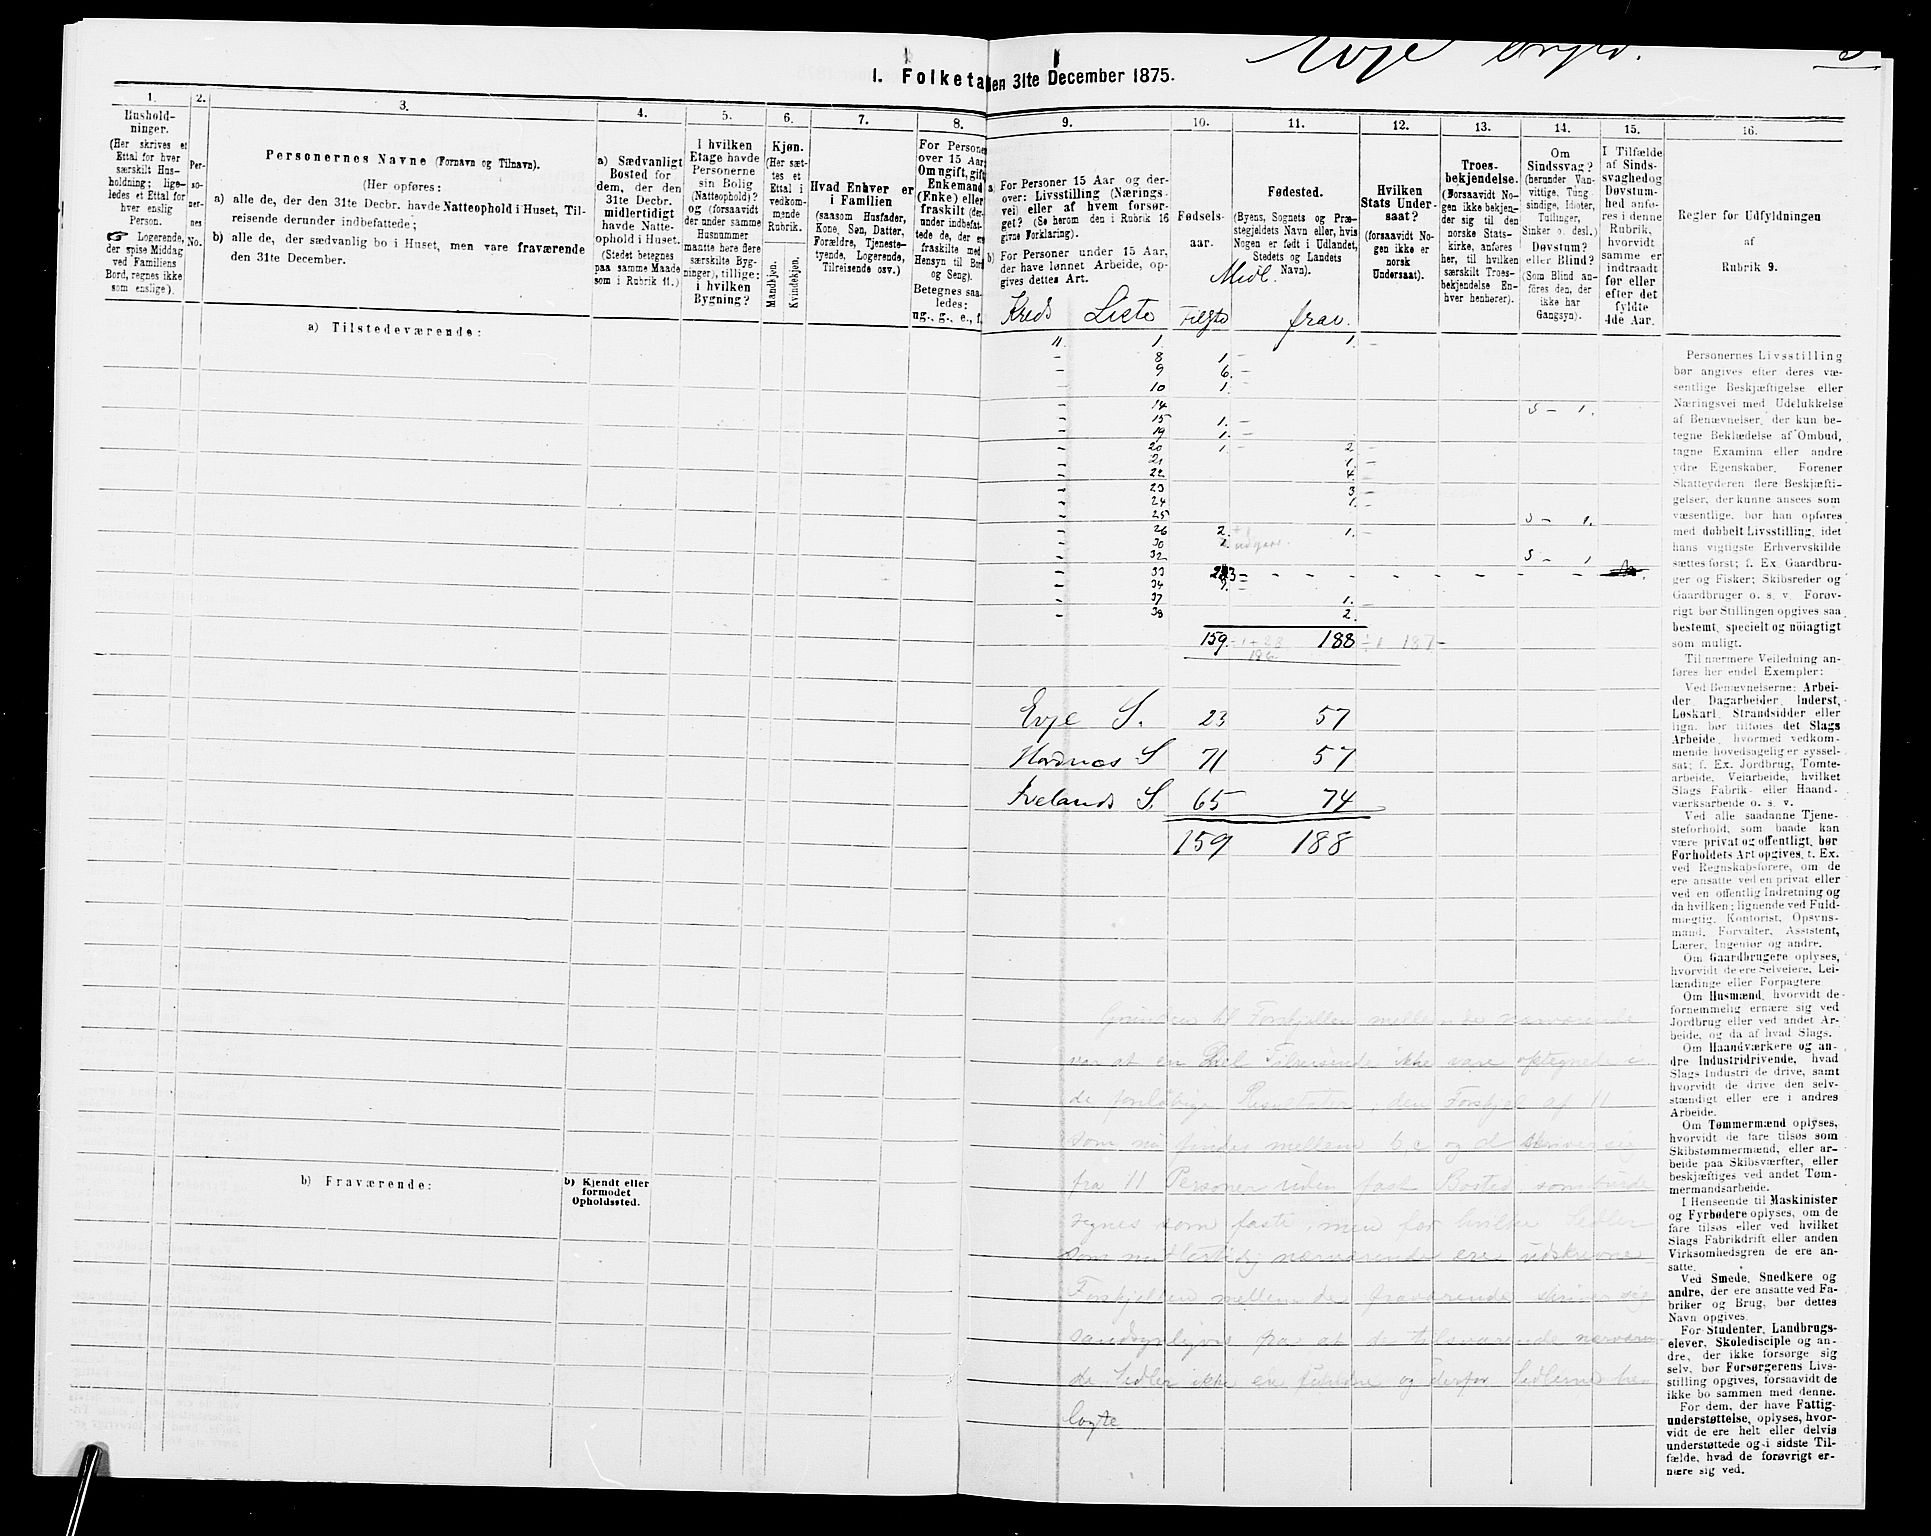 Evje
1. Folketa
den 31te December 1875.
1.
Hushold-
ninger.
(Her skrives et
Ettal for hver
særskilt Hus-
holdning; lige-
ledes et Ettal for
hver enslig
Person.
☞ Logerende,
der spise Middag
ved Familiens
Bord, regnes ikke
som enslige).
2.
Per-
so-
ner-
nes
No.
3.
Personernes Navne (Fornavn og Tilnavn).
(Her opføres:
a) alle de, der den 31te Decbr. havde Natteophold i Huset, Til-
reisende derunder indbefattede;
b) alle de, der sædvanlig bo i Huset, men vare fraværende
den 31te December.
4.
a) Sædvanligt
Bosted for
dem, der den
31te Decbr.
midlertidigt
havde Natte-
ophold i Huset.
(Stedet betegnes
paa samme Maade
som i Rubrik 11.)
5.
I hvilken
Etage havde
Personerne
sin Bolig
(Natteophold)?
og (forsaavidt
der under samme
Husnummer
maatte here flere
særskilte Byg-
ninger), tillige:
i hvilken
Bygning?
6.
Kjøn.
(Her sæt-
tes et
Ettal i
vedkom-
mende
Rubrik.
Mandkjøn.
Kvindekjøn.
7.
Hvad Enhver er
i Familien
(saasom Husfader,
Kone, Søn, Datter,
Forældre, Tjeneste-
tyende, Logerende,
Tilreisende osv.)
8.
For Personer
over 15 Aar:
Om ugift, gift,
Enkemand
(Enke) eller
fraskilt (der-
under indbefat-
tede de, der er
fraskilte med
Hensyn til Bord
og Seng).
Betegnes saa-
ledes:
ug., g., e., f.
9.
a) For Personer 15 Aar og der-
over: Livsstilling (Nærings-
vei) eller af hvem forsør-
get? (Se herom den i Rubrik 16
givne Forklaring).
b) For Personer under 15 Aar,
der have lønnet Arbeide, op-
gives dettes Art.
10.
Fødsels-
aar.
11.
Fødested.
(Byens, Sognets og Præ-
stegjeldets Navn eller, hvis
Nogen er født i Udlandet,
Stedets og Landets
Navn).
12.
Hvilken
Stats Under-
saat?
(forsaavidt No-
gen ikke er
norsk
Undersaat).
13.
Troes-
bekjendelse.
(Forsaavidt No-
gen ikke bekjen-
der sig til den
norske Stats-
kirke, anføres
her, til hvilken
særskilt Troes-
bekjendelse En-
hver henhører).
14.
Om
Sindssvag?
(herunder Van-
vittige, Tung-
sindige, Idioter,
Tullinger,
Sinker o. desl.)
Døvstum?
eller Blind?
(Som Blind an-
føres den, der
ikke har
Gangsyn).
15.
I Tilfælde
af Sinds-
svaghed og
Døvstum-
hed anfø-
res i denne
Rubrik,
hvorvidt
samme er
indtraadt
før eller
efter det
fyldte
4de Aar.
16.
Regler for Udfyldningen
af
Rubrik 9.
Midl.
Kreds Liste Tilstd frav.
a) Tilstedeværende:
11 1. 1. -
- 8 1. -
- 9 6. -
- 10 1. -
- 14 S - 1.
- 15 1. -
- 19 1. -
- 20 1 - 2 -
- 21 1. -
- 22 4. -
- 23 3 -
- 24 1. -
- 25 S - 1.
- 26 2. 1. -
- 30 2.
- 32 S - 1
- 33
- 34
- 37 1.
- 38 2.
159. 188 187 -
Evje S. 23 57
Hordnæs S 71 57
Ivelands S. 65 74
159 188
Personernes Livsstilling
bør angives efter deres væ-
sentlige Beskjæftigelse eller
Næringsvei med Udelukkelse
af Benævnelser, der kun be-
tegne Beklædelse af Ombud,
tagne Examina eller andre
ydre Egenskaber. Forener
Skatteyderen flere Beskjæfti-
gelser, der kunne ansees som
væsentlige, bør han opføres
med dobbelt Livsstilling, idet
hans vigtigste Erhvervskilde
sættes først; f. Ex. Gaardbru-
ger og Fisker; Skibsreder og
Gaardbruger o. s. v. Forøv-
rigt bør Stillingen opgives saa
bestemt, specielt og nöiagtigt
som muligt.
Til nærmere Veiledning an-
føres her endel Exempler:
Ved Benævnelserne: Arbei-
der, Dagarbeider, Inderst,
Løskarl, Strandsidder eller
lign. bør tilføies det Slags
Arbeide, hvormed vedkom-
mende hovedsagelig er syssel-
sat; f. Ex. Jordbrug, Tomte-
arbeide, Veiarbeide, hvilket
Slags Fabrik- eller Haand-
værksarbeide o. s. v.
Ved alle saadanne Tjene-
steforhold, som baade kan
være privat og offentligt, bør
Forholdets Art opgives, t. Ex.
ved Regnskabsførere, om de
ere ansatte ved en privat eller
ved en offentlig Indretning og
da hvilken; lignende ved Fuld-
mægtig, Kontorist, Opsyns-
mand, Forvalter, Assistent,
Lærer, Ingeniør og andre.
Om Gaardbrugere oplyses,
hvorvidt de ere Selveiere, Lei-
lændinge eller Forpagtere
Om Husmænd, hvorvidt de
fornemmelig ernære sig ved
Jordbrug eller ved andet Ar-
beide, og da af hvad Slags.
Om Haandværkere og an-
dre Industridrivende, hvad
Slags Industri de drive, samt
hvorvidt de drive den selv-
stændigt eller ere i andres
Arbeide.
Om Tømmermænd oplyses,
hvorvidt de fare tilsøs som
Skibstømmermænd, eller ar-
beide paa Skibsværfter, eller
beskjæftiges ved andet Tøm-
mermandsarbeide.
I Henseende til Maskinister
og Fyrbødere oplyses, om de
fare tilsøs eller ved hvilket
Slags Fabrikdrift eller anden
Virksomhedsgren de ere an-
satte.
Ved Smede, Snedkere og
andre, der ere ansatte ved Fa-
briker og Brug, bør dettes
Navn opgives.
For Studenter, Landbrugs-
elever, Skoledisciple og an-
dre, der ikke forsørge sig
selv, bør Forsørgerens Livs-
stilling opgives, forsaavidt de
ikke bo sammen med denne.
For dem, der have Fattig-
understøttelse, oplyses, hvor-
vidt de ere helt eller delvis
understøttede og i sidste Til-
fælde, hvad de forøvrigt er-
nære sig ved.
Grunden til Forskjellen mellem de nærværende
var at en Deel Tilreisende ikke vare optegnede i
de foreløbige Resultater, den Forskjel af 11
som nu findes mellem b, c og d skriver sig
fra 11 Personer uden fast Bosted som burde
regnes som faste, men for hvilke Sedler
som midlertidig nærværende ere udskrevne
Forskjellen mellem de fraværende skriver sig
sandsynligvis fra at de tilsvarende nærværen-
de Sedler ikke ere fundne og derfor Sedlerne hen
lagte
b) Fraværende:
b) Kjendt eller
formodet
Opholdssted.